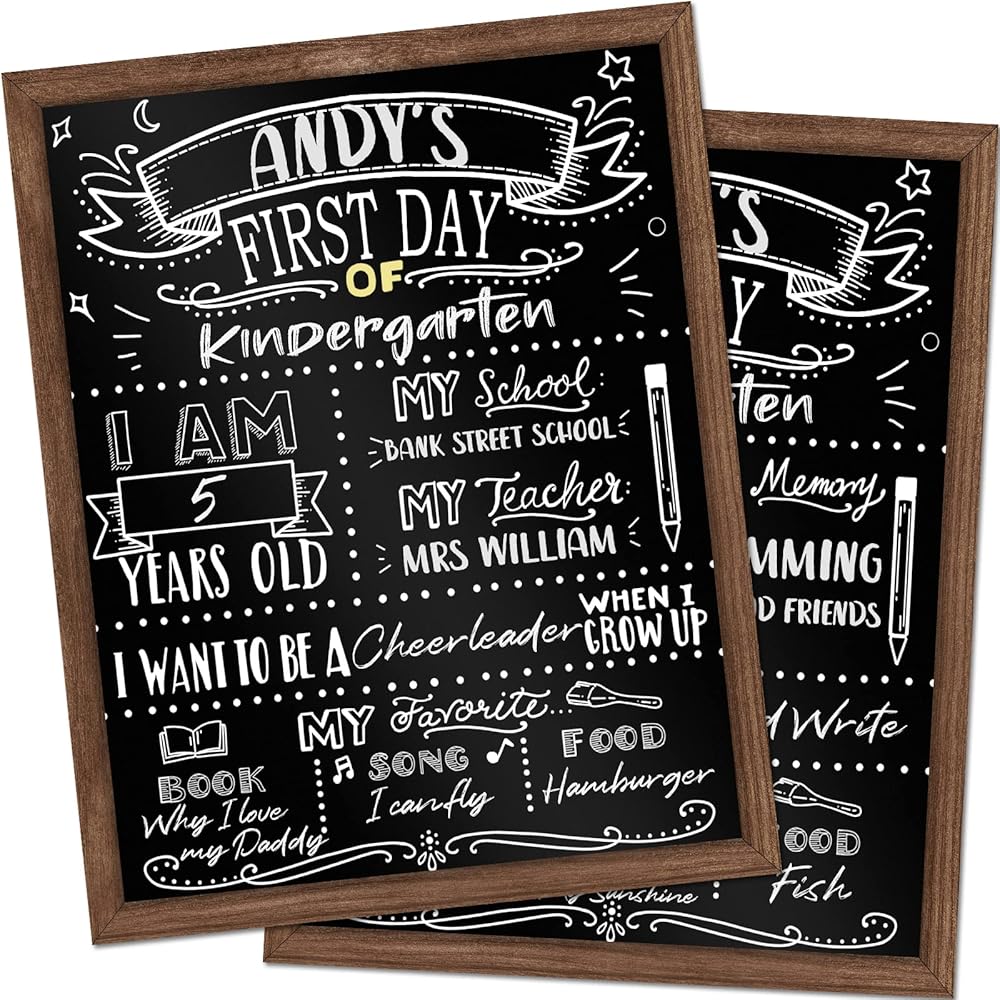 ANDY'S
FIRST DAY
OF
Kindergarten
I AM
5
YEARS OLD
MY School:
BANK STREET SCHOOL
MY Teacher:
MRS WILLIAM
I WANT TO BE A Cheerleader WHEN I GROW UP
MY Favorite...
BOOK
Why I love
my Daddy
SONG
I can fly
FOOD
Hamburger
'S
Y
ten
Memory
MMING
D FRIENDS
d Write
OOD
Fish
y Sunshine